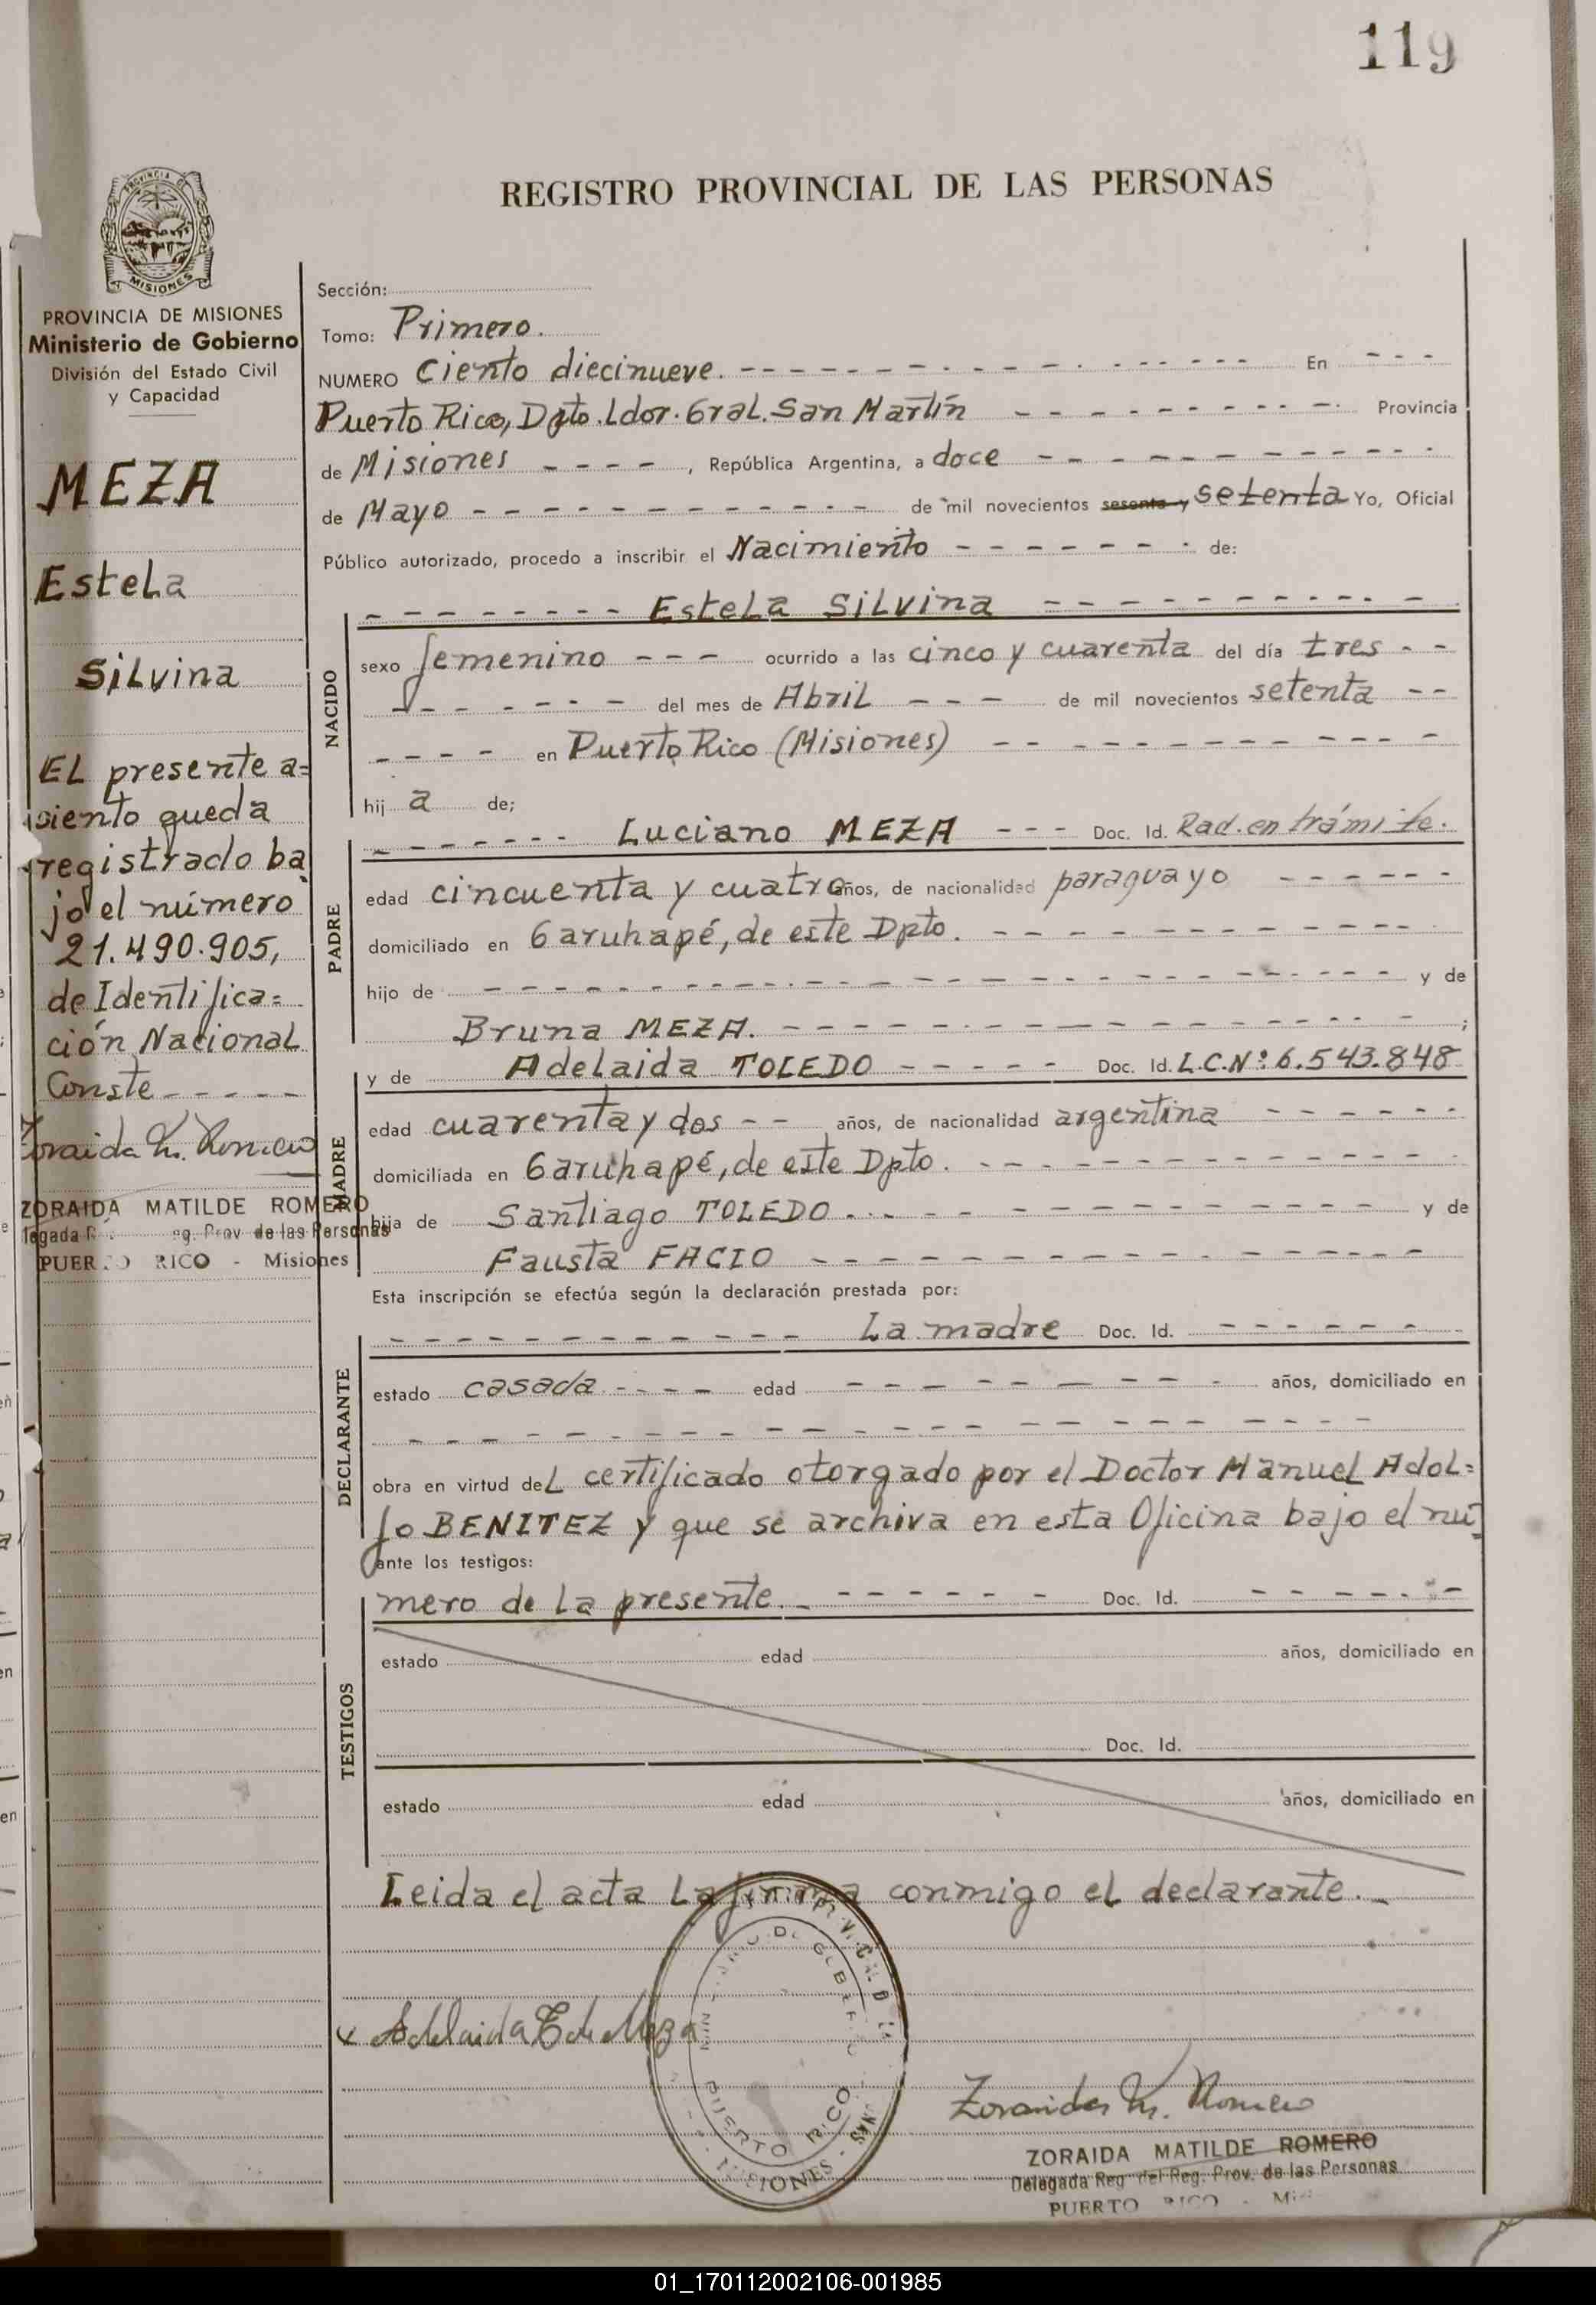 119
REGISTRO PROVINCIAL DE LAS PERSONAS
PROVINCIA DE
MISIONES
PROVINCIA DE MISIONES
Ministerio de Gobierno
División del Estado Civil
y Capacidad
MEZA
Estela
Silvina
EL presente a=
siento queda
registrado ba
jo el número
21.490.905,
de Identifica=
ción Nacional
Conste - - - - -
Zoraida M. Romero
ZORAIDA MATILDE ROMERO
PUERTO RICO - Misiones
Sección:
Tomo: Primero.
NUMERO Ciento diecinueve. - - - - - - - - - - - - En - - -
Puerto Rico, Dpto. Ldor. Gral. San Martín - - - - - - - - - Provincia
de Misiones - - - - , República Argentina, a doce - - - - - - - - - -
de Mayo - - - - - - - - - - - de mil novecientos sesenta y setenta Yo, Oficial
Público autorizado, procedo a inscribir el Nacimiento - - - - - - - de:
- - - - - - - - Estela Silvina - - - - - - - - - -
NACIDO
sexo femenino - - - ocurrido a las cinco y cuarenta del día tres - -
- - - - - - del mes de Abril - - - de mil novecientos setenta - -
- - - - en Puerto Rico (Misiones) - - - - - - - - - -
hij a de;
- - - - - - Luciano MEZA - - - Doc. Id. Rad. en trámite.
PADRE
edad cincuenta y cuatro años, de nacionalidad paraguayo - - - - - -
domiciliado en Garuhapé, de este Dpto. - - - - - - - - - -
hijo de - - - - - - - - - - - - - - - - - - y de
Bruna MEZA. - - - - - - - - - - - - - - ;
y de Adelaida TOLEDO - - - - - Doc. Id. L.C.Nº: 6.543.848
MADRE
edad cuarenta y dos - - años, de nacionalidad argentina - - - - - -
domiciliada en Garuhapé, de este Dpto. - - - - - - - - - - -
hija de Santiago TOLEDO. - - - - - - - - - - - - y de
Fausta FACIO - - - - - - - - - - - - -
Esta inscripción se efectúa según la declaración prestada por:
- - - - - - - - - - - - La madre Doc. Id. - - - - - -
DECLARANTE
estado casada - - - - edad - - - - - - - - - años, domiciliado en
- - - - - - - - - - - - - - - - - - - -
obra en virtud del certificado otorgado por el Doctor Manuel Adol=
fo BENITEZ y que se archiva en esta Oficina bajo el nú
ante los testigos:
mero de la presente. - - - - - - - Doc. Id. - - - - - -
TESTIGOS
estado edad años, domiciliado en
Doc. Id.
estado edad años, domiciliado en
Leida el acta La firma conmigo el declarante. -
x Adelaida T de Meza
PUERTO RICO
MISIONES
Zoraida M. Romero
ZORAIDA MATILDE ROMERO
Delegada Reg. del Reg. Prov. de las Personas
PUERTO RICO - Mi
01_170112002106-001985